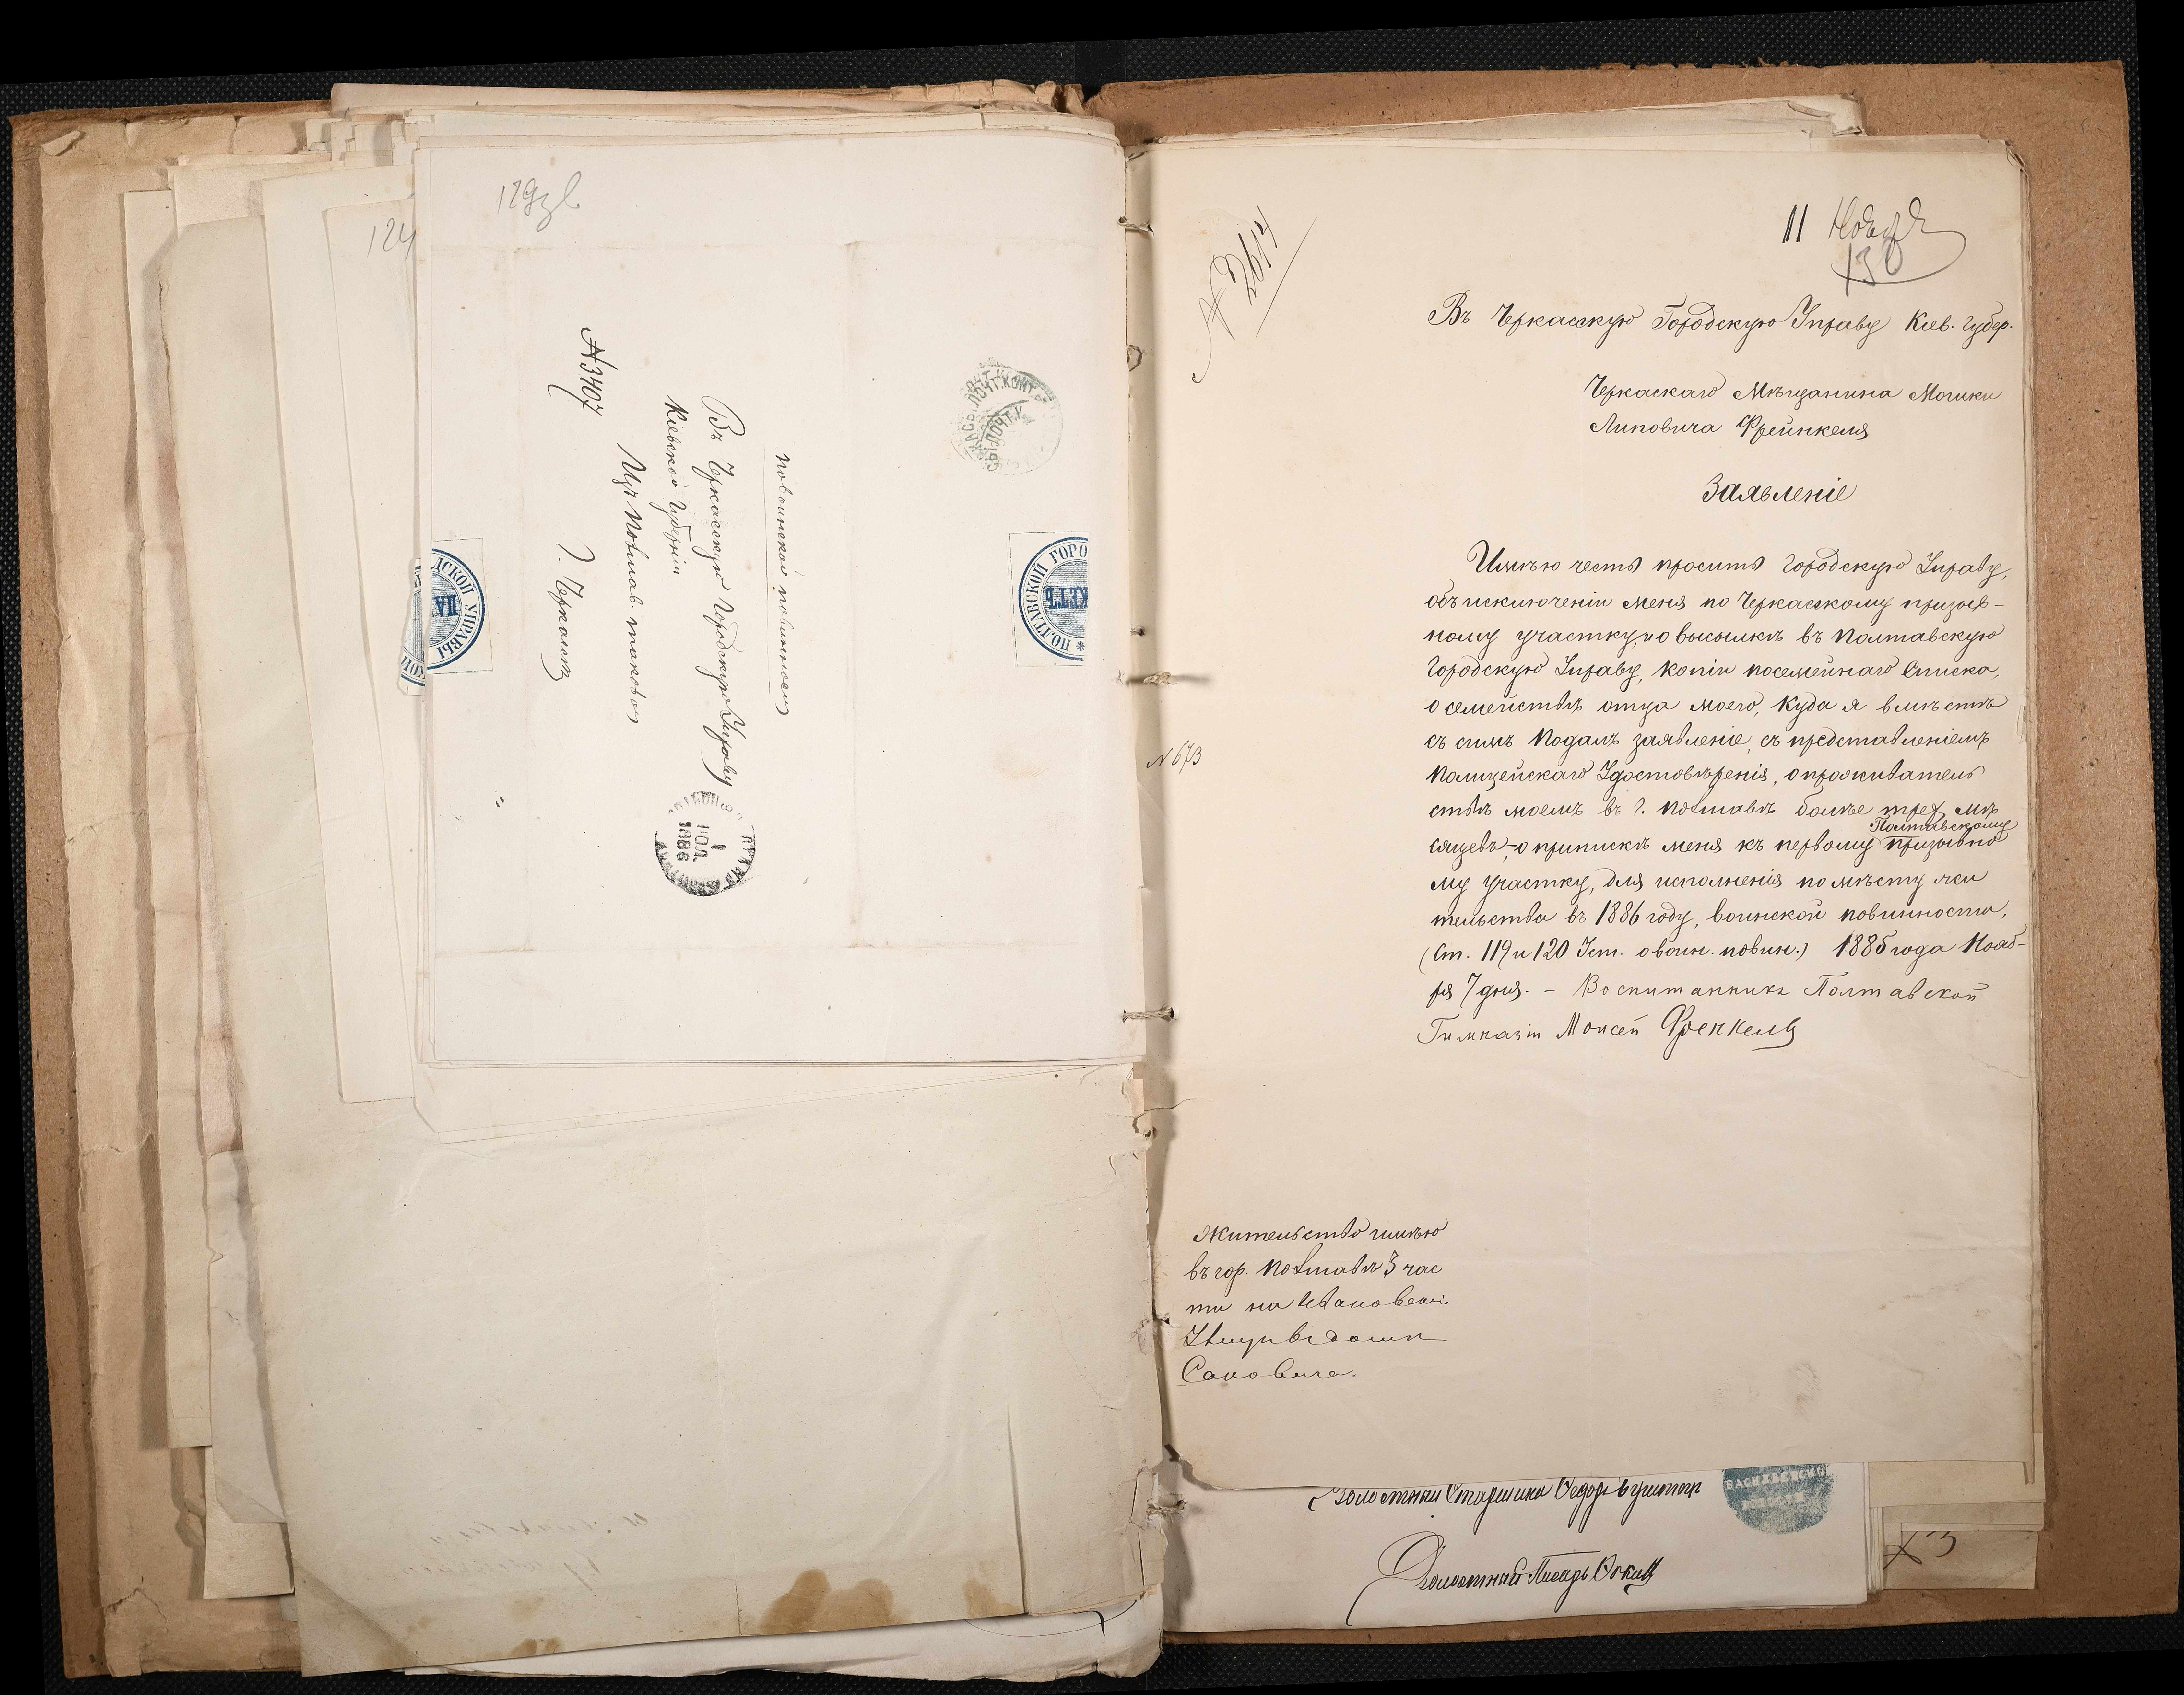 129зв
124
№3407
По воинской повинности
Въ Черкасскую Городскую Управу
Кіевской Губерніи
Изъ Полтавы таковой
г. Черкассы
ПОЛТАВСКОЙ ГОРО
КЕТЪ
ДСКОЙ УПРАВЫ
ПА
1 ІЮЛ. 1886
№ 2614
11 Ноября
130
Въ Черкасскую Городскую Управу Кіев. губер.
Черкаскаго Мѣщанина Мошки
Липовича Фрейнкеля
Заявленіе
Имѣю честь просить Городскую Управу,
объ исключеніи меня по Черкаскому призыв-
ному участку, и о высылкѣ въ Полтавскую
Городскую Управу, копіи посемейнаго Списка,
о семействѣ отца моего, куда я вмѣстѣ
съ симъ подалъ заявленіе, съ представленіемъ
Полицейскаго Удостовѣренія, о прожитатель
ствѣ моемъ въ г. Полтавѣ болѣе трех мѣ
сяцевъ, о припискѣ меня къ первому Полтавскому призывно
му участку, для исполненія по мѣсту жи
тельства въ 1886 году, воинской повинности,
(Ст. 119 и 120 Уст. о воин. повин.) 1885 года Нояб-
ря 7 дня. – Воспитанникъ Полтавской
Гимназіи Моисей Френкель
№ 673
Жительство имѣю
въ гор. Полтавѣ 3 час
ти на Ивановской
Улицѣ въ домѣ
Сановича.
Волостный Старшина Федоръ
Волостный Писарь